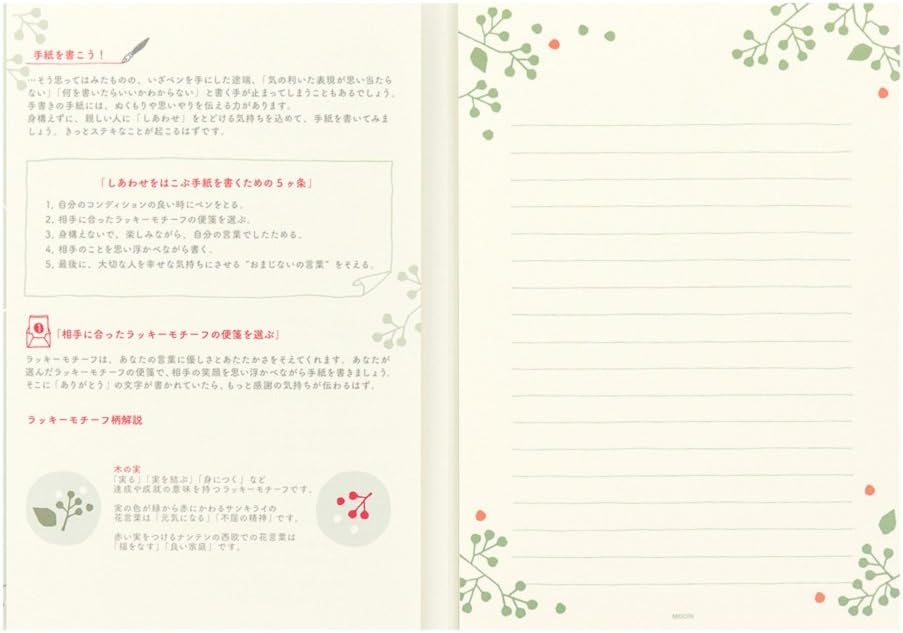 手紙を書こう！
…そう思ってはみたものの、いざペンを手にした途端、「気の利いた表現が思い当たら
ない」「何を書いたらいいかわからない」と書く手が止まってしまうこともあるでしょう。
手書きの手紙には、ぬくもりや思いやりを伝える力があります。
身構えずに、親しい人に「しあわせ」をとどける気持ちを込めて、手紙を書いてみま
しょう。きっとステキなことが起こるはずです。
「しあわせをはこぶ手紙を書くための5ヶ条」
1, 自分のコンディションの良い時にペンをとる。
2, 相手に合ったラッキーモチーフの便箋を選ぶ。
3, 身構えないで、楽しみながら、自分の言葉でしたためる。
4, 相手のことを思い浮かべながら書く。
5, 最後に、大切な人を幸せな気持ちにさせる“おまじないの言葉”をそえる。
1
「相手に合ったラッキーモチーフの便箋を選ぶ」
ラッキーモチーフは、あなたの言葉に優しさとあたたかさをそえてくれます。あなたが
選んだラッキーモチーフの便箋で、相手の笑顔を思い浮かべながら手紙を書きましょう。
そこに「ありがとう」の文字が書かれていたら、もっと感謝の気持ちが伝わるはず。
ラッキーモチーフ柄解説
木の実
「実る」「実を結ぶ」「身につく」など
達成や成就の意味を持つラッキーモチーフです。
実の色が緑から赤にかわるサンキライの
花言葉は「元気になる」「不屈の精神」です。
赤い実をつけるナンテンの西欧での花言葉は
「福をなす」「良い家庭」です。
MIDORI